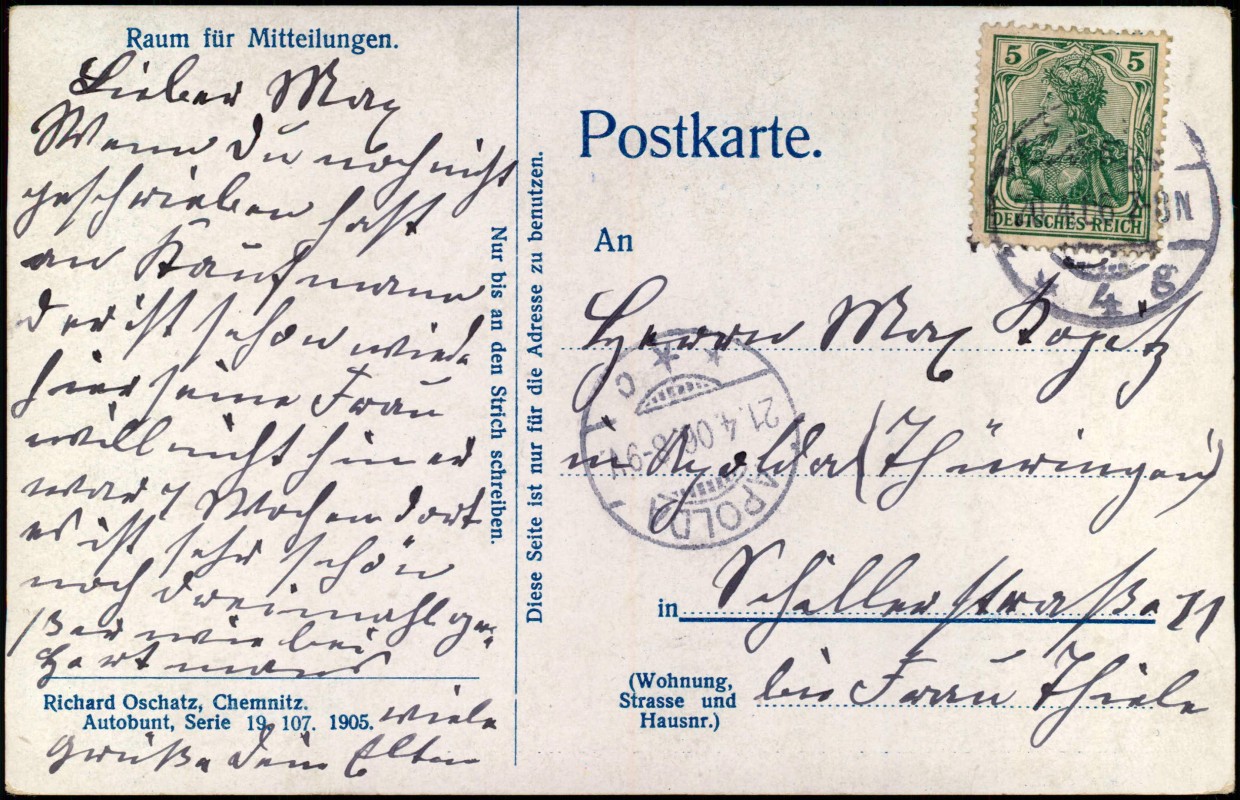 Raum für Mitteilungen.
Lieber Max
Wenn Du noch nicht
geschrieben hast
an Kaufmann
der ist schon wieder
hier seine Frau
will nicht hin er
war 4 Wochen dort
es ist sehr schön
noch dreimahl grö-
ßer wie bei
Hartmans
viele
Grüße Dein Eltern
Richard Oschatz, Chemnitz.
Autobunt, Serie 19, 107. 1905.
Nur bis an den Strich schreiben.
Diese Seite ist nur für die Adresse zu benutzen.
Postkarte.
5 5
DEUTSCHES REICH
8N
* 4 g
An
Herrn Max
in Apolda (Thüringen)
APOLDA
21.4.06. 8-9
* c *
in Schillerstraße 11
(Wohnung,
Strasse und
Hausnr.)
bei Frau Thiele